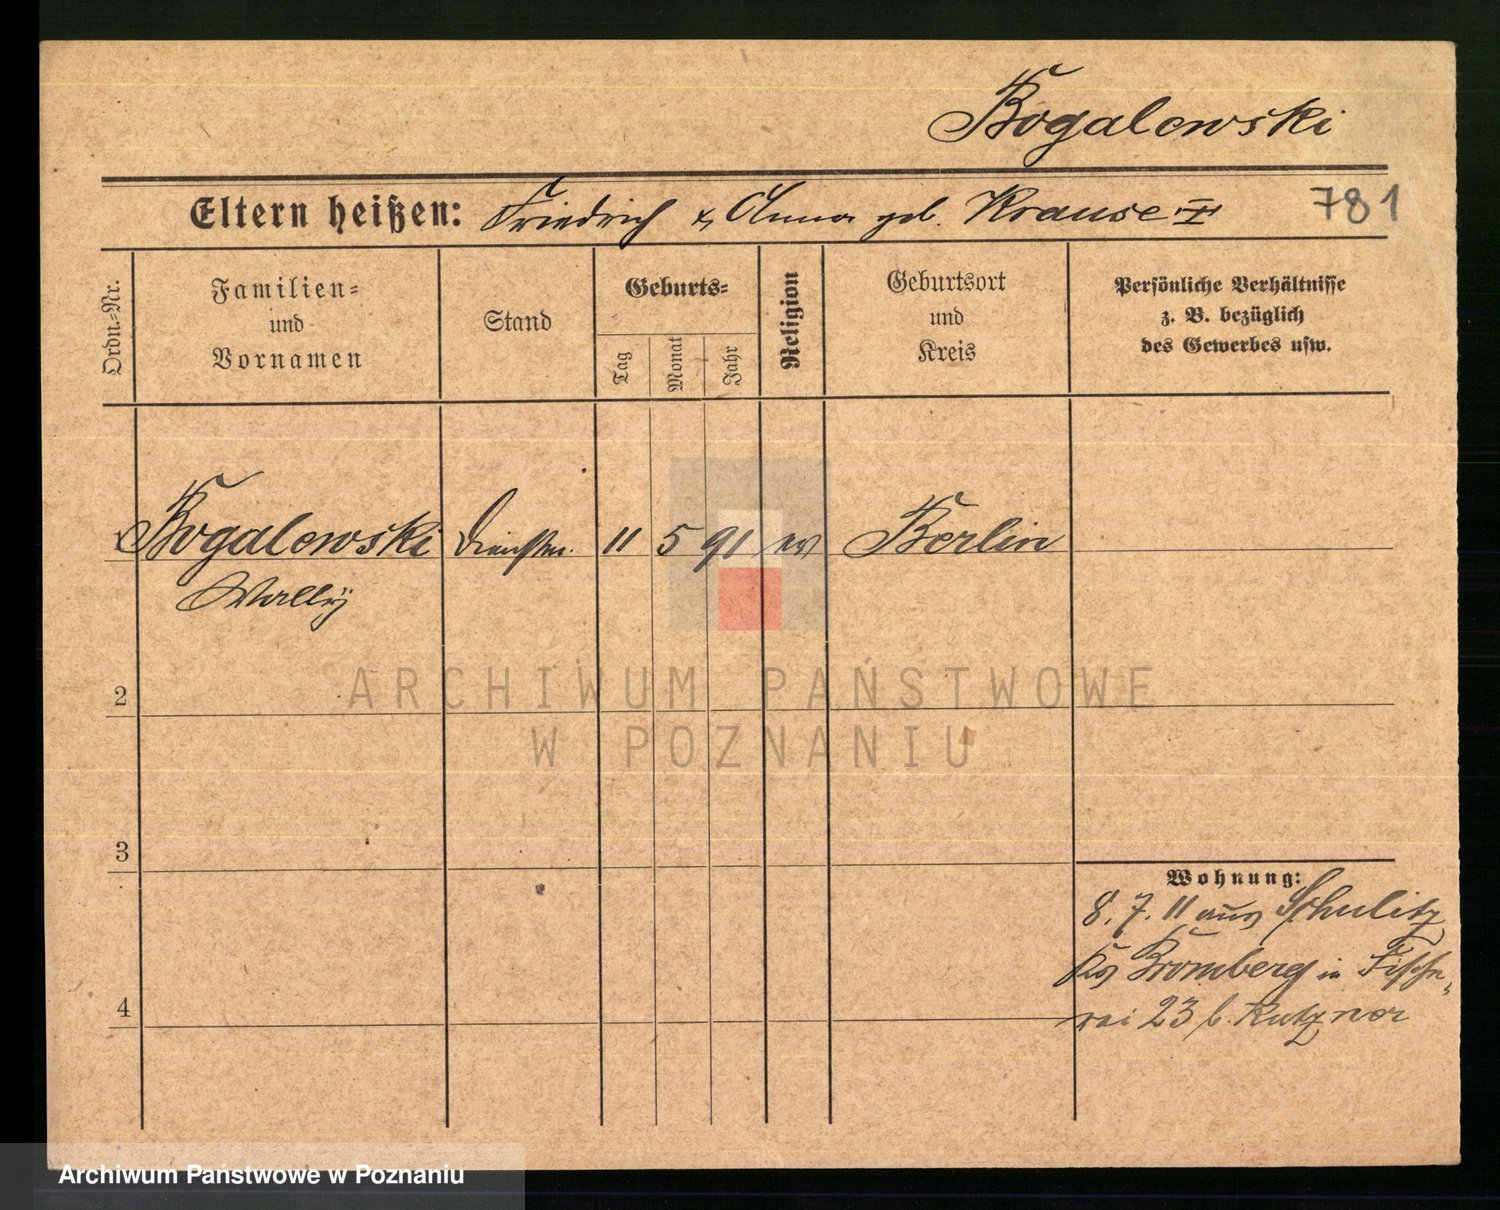 Bogalewski
Eltern heißen: Friedrich & Anna geb. Krause
781
Ordn.-Nr.
Familien-
und
Vornamen
Stand
Geburts-
Tag
Monat
Jahr
Religion
Geburtsort
und
Kreis
Persönliche Verhältnisse
z. B. bezüglich
des Gewerbes usw.
Bogalewski Dienstm. 11 5 91 ev Berlin
Wally
2
3
4
Wohnung:
8. 7. 11 aus Schulitz
Krs Bromberg in Fische-
rei 23 b. Kutzner
ARCHIWUM PAŃSTWOWE
W POZNANIU
Archiwum Państwowe w Poznaniu